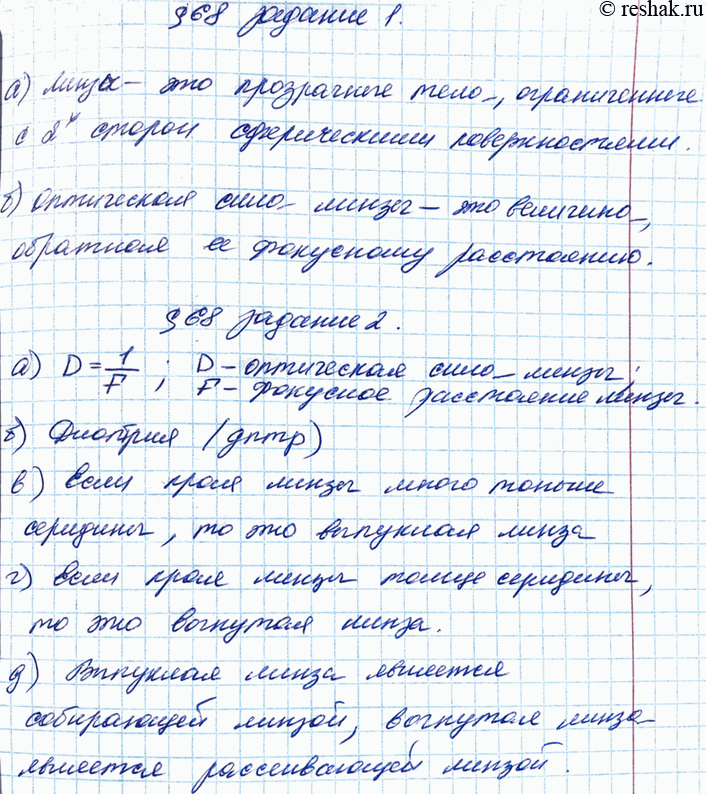 © reshak.ru
§68 задание 1.
а) линза – это прозрачное тело, ограниченное
с 2х сторон сферическими поверхностями.
б) оптическая сила линзы – это величина,
обратная ее фокусному расстоянию.
§68 задание 2.
а) D = 1/F ; D – оптическая сила линзы;
F – фокусное расстояние линзы.
б) Диоптрия (дптр)
в) Если края линзы много тоньше
середины, то это выпуклая линза
г) Если края линзы толще середины,
то это вогнутая линза.
д) Выпуклая линза является
собирающей линзой, вогнутая линза
является рассеивающей линзой.